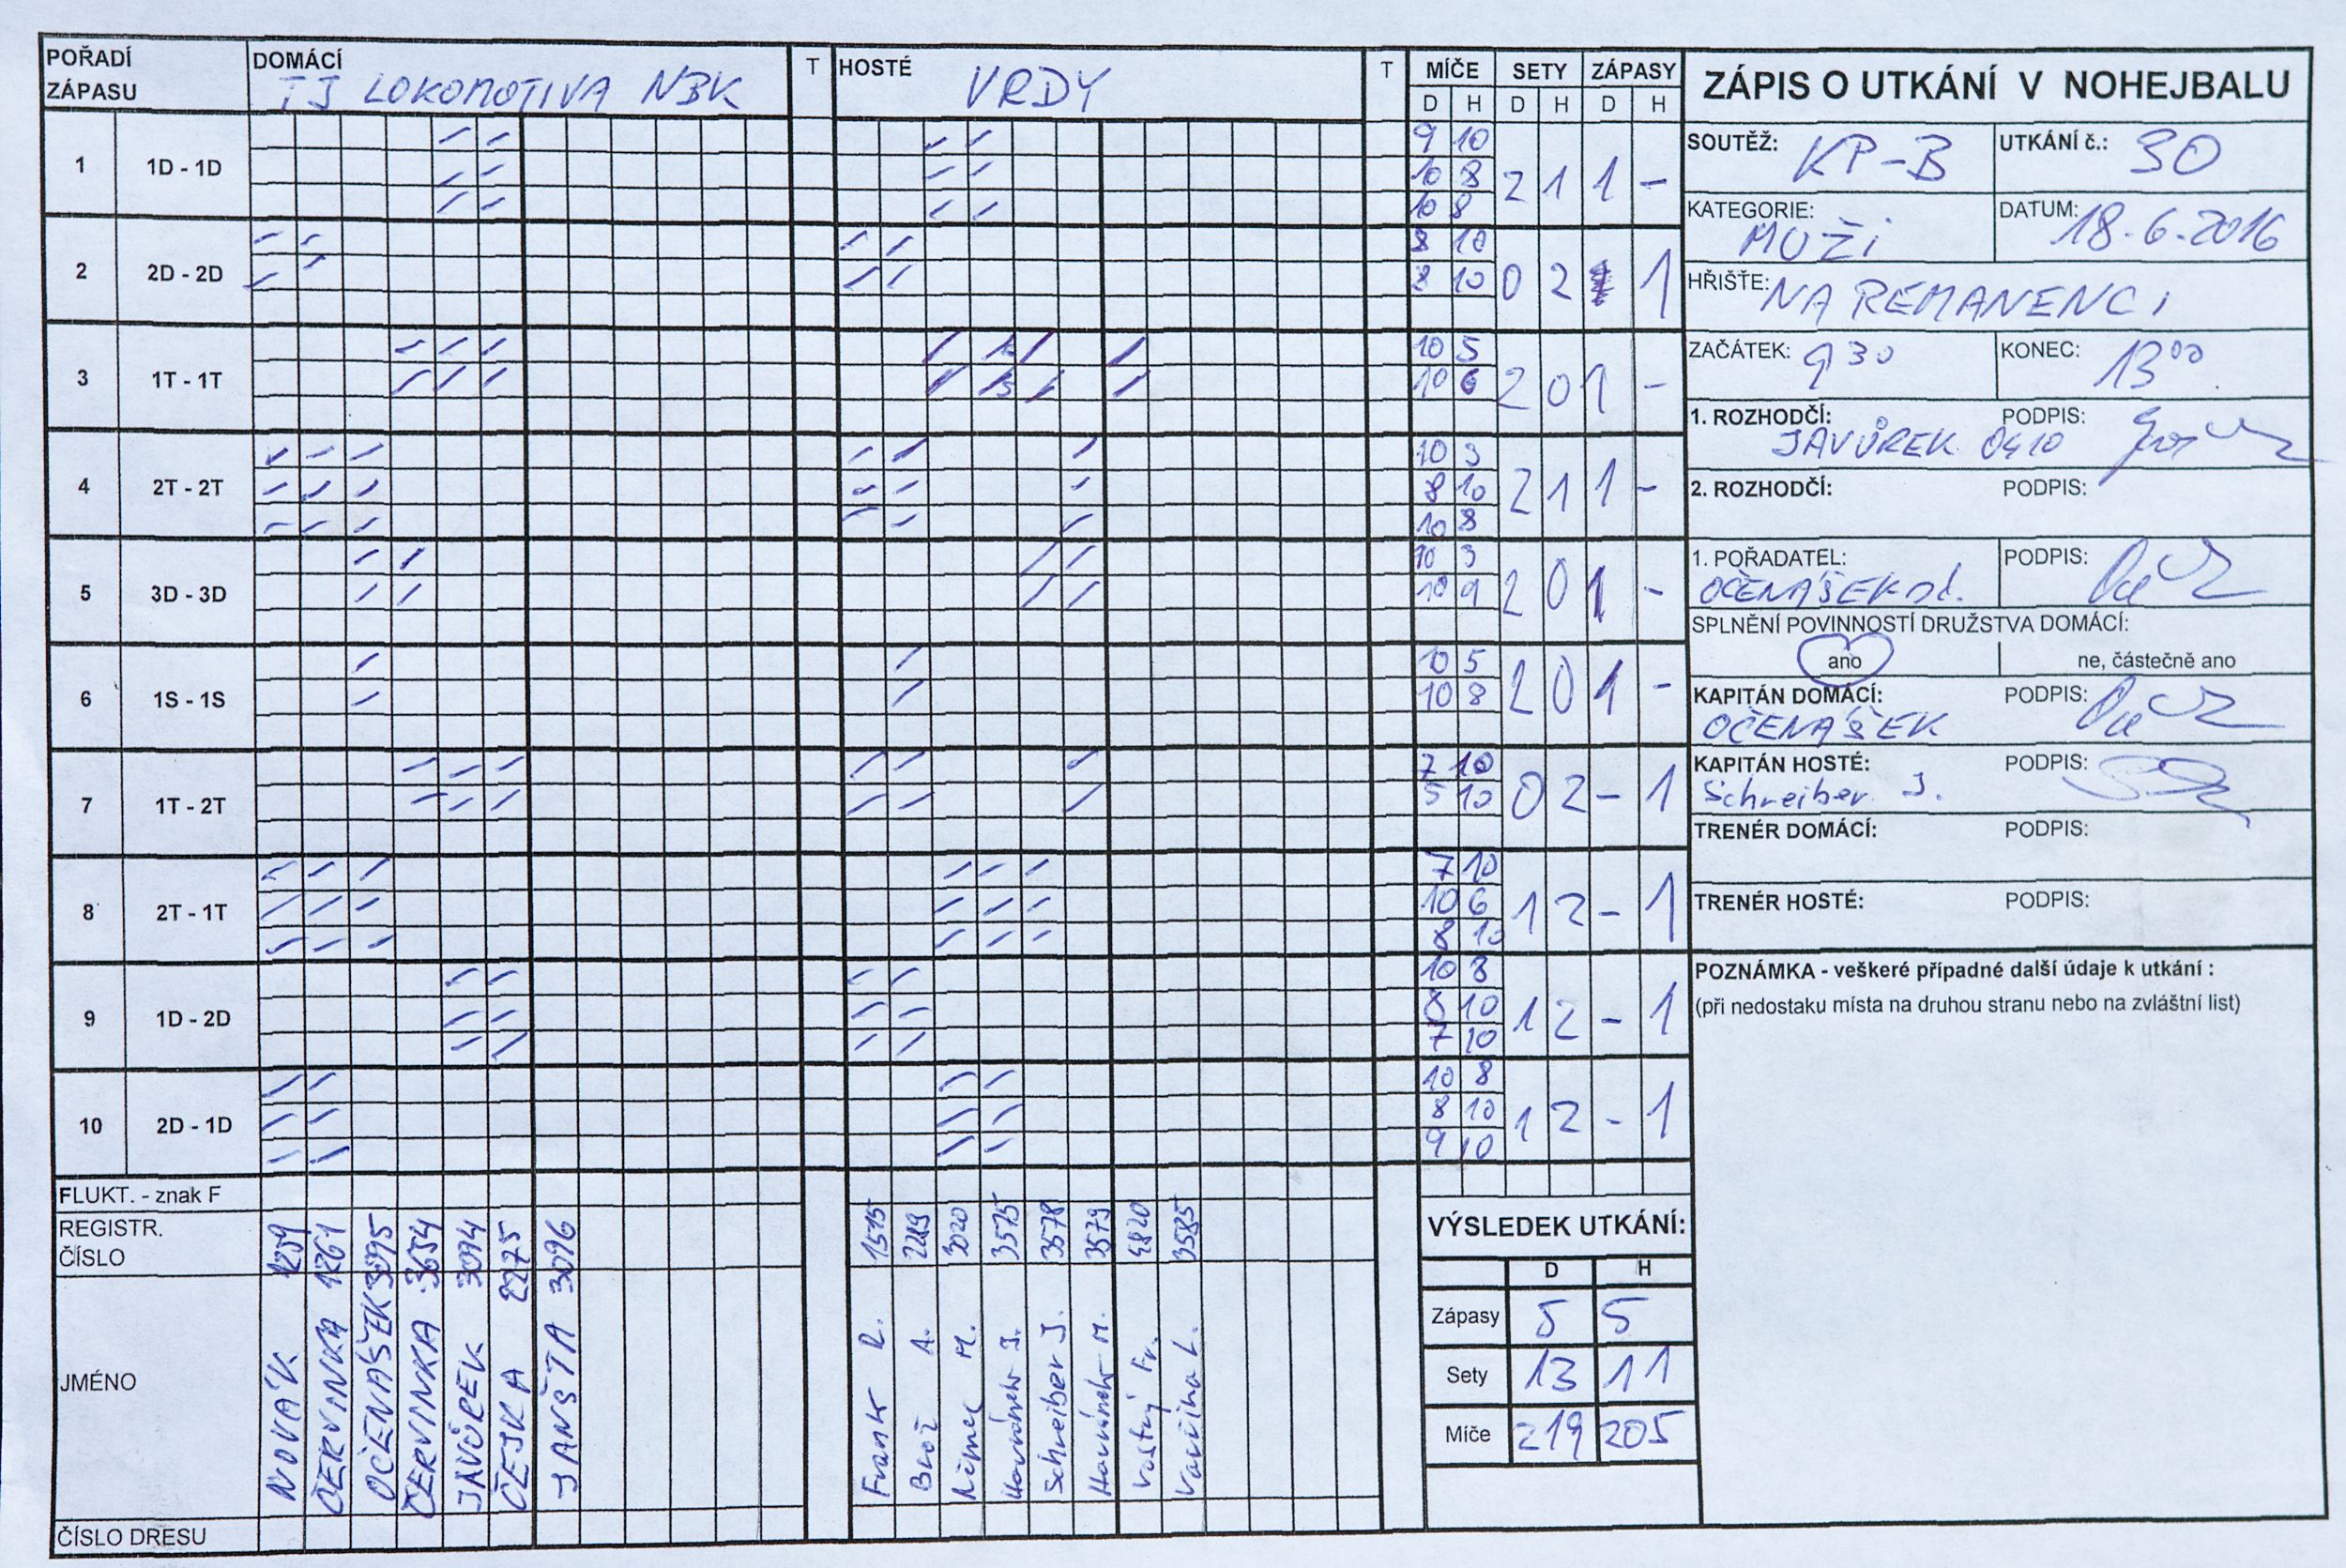 POŘADÍ ZÁPASU DOMÁCÍ T HOSTÉ T MÍČE SETY ZÁPASY
TJ LOKOMOTIVA NBK VRDY
D H D H D H
1 1D - 1D 9 10 2 1 1 -
10 8
10 8
2 2D - 2D 8 10 0 2 1
8 10
3 1T - 1T 10 5 2 0 1 -
10 6
4 2T - 2T 10 3 2 1 1 -
8 10
10 8
5 3D - 3D 10 3 2 0 1 -
10 9
6 1S - 1S 10 5 2 0 1 -
10 8
7 1T - 2T 7 10 0 2 - 1
5 10
8 2T - 1T 7 10 1 2 - 1
10 6
8 10
9 1D - 2D 10 8 1 2 - 1
8 10
7 10
10 2D - 1D 10 8 1 2 - 1
8 10
9 10
FLUKT. - znak F
REGISTR. ČÍSLO
JMÉNO
ČÍSLO DRESU
NOVÁK 1259
ČERVINKA 1261
OČENÁŠEK 3095
ČERVINKA 3654
JAVŮREK 3094
ČEJKA 2275
JANŠTA 3096
Frank R. 1515
Brož A. 2289
Němec M. 3020
3575
Schreiber J. 3578
3579
Vostrý Fr. 4820
Vavřina L. 3585
VÝSLEDEK UTKÁNÍ:
D H
Zápasy 5 5
Sety 13 11
Míče 219 205
ZÁPIS O UTKÁNÍ V NOHEJBALU
SOUTĚŽ: KP-B UTKÁNÍ č.: 30
KATEGORIE: MUŽI DATUM: 18.6.2016
HŘIŠTĚ: NA REMANENCI
ZAČÁTEK: 9 30 KONEC: 13 00
1. ROZHODČÍ: PODPIS:
JAVŮREK 0410
2. ROZHODČÍ: PODPIS:
1. POŘADATEL: PODPIS:
OČENÁŠEK
SPLNĚNÍ POVINNOSTÍ DRUŽSTVA DOMÁCÍ:
ano ne, částečně ano
KAPITÁN DOMÁCÍ: PODPIS:
OČENÁŠEK
KAPITÁN HOSTÉ: PODPIS:
Schreiber J.
TRENÉR DOMÁCÍ: PODPIS:
TRENÉR HOSTÉ: PODPIS:
POZNÁMKA - veškeré případné další údaje k utkání :
(při nedostaku místa na druhou stranu nebo na zvláštní list)